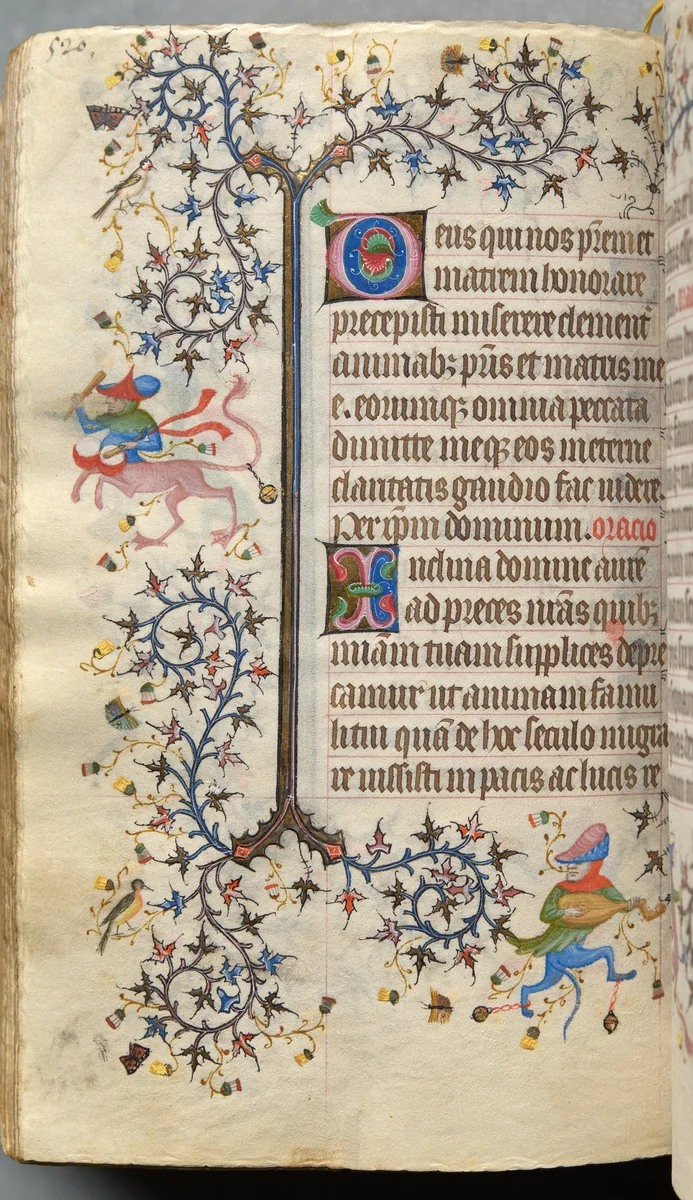 520.
Deus qui nos p̄rem et
matrem honorare
precepisti miserere clement̄
animabꝫ pr̄is et matris me
e. eorumqꝫ omnia peccata
dimitte meqꝫ eos in eterne
claritatis gaudio fac uidere.
Per xp̄m dominum. oracio
Inclina domine aurē
ad preces nr̄as quibꝫ
miām tuam supplices depre
camur ut animam famu
li tui quā de hoc seculo migra
re iussisti in pacis ac lucis re